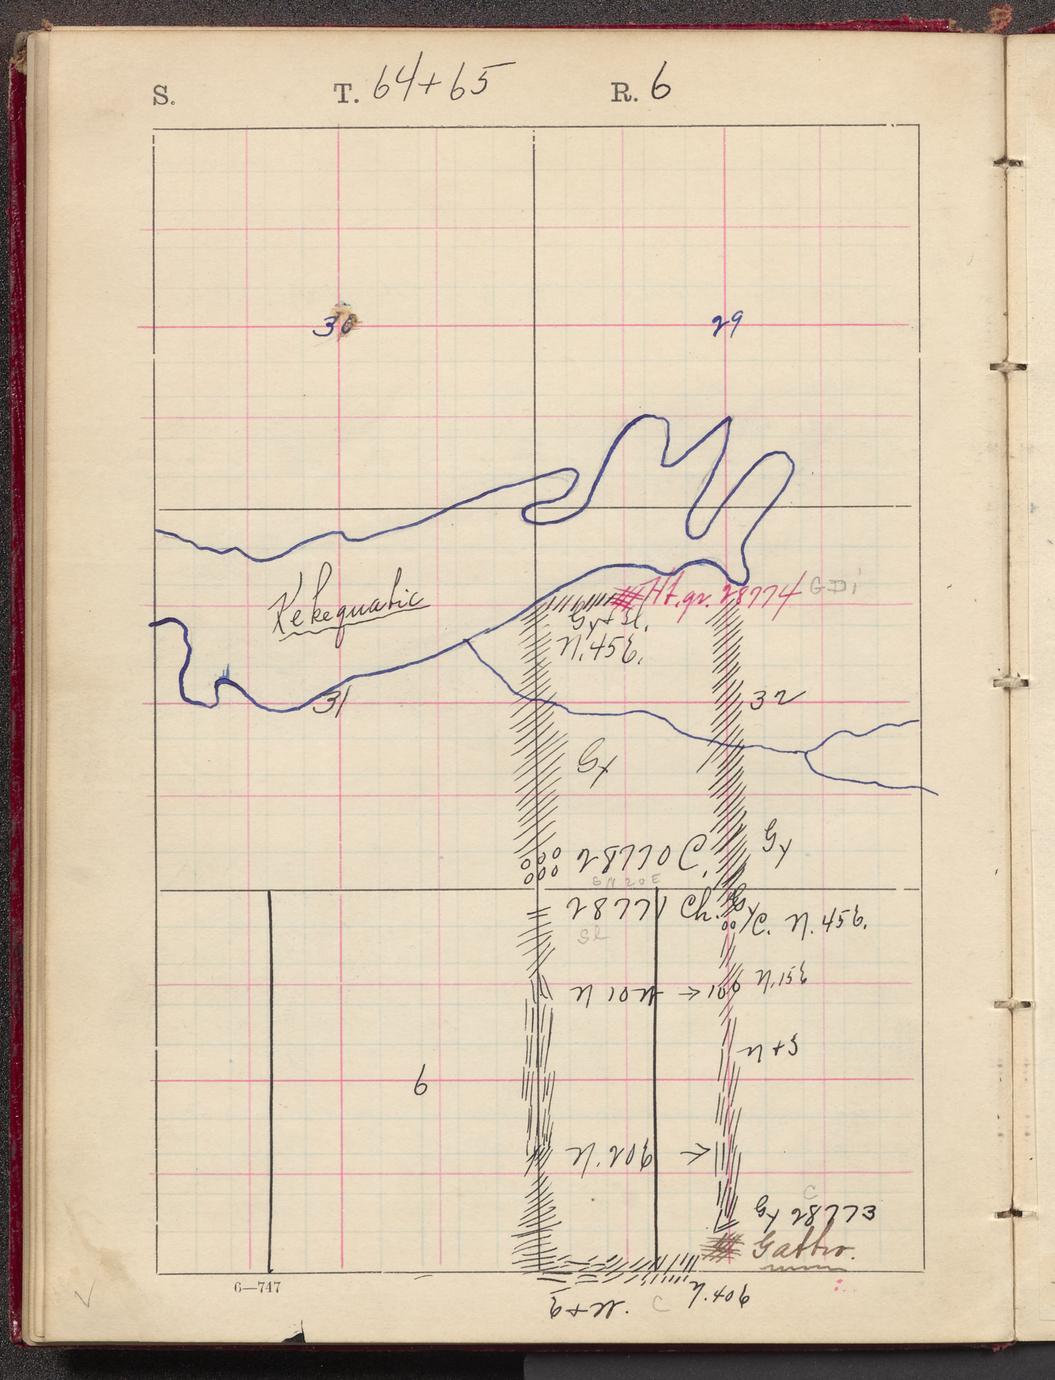 S. T. 64+65 R. 6
30 29
Kekequabic
Ht. gr. 28774 GDi
Gy + Sl.
N. 45E.
31 32
Gy
28770 C. Gy
SN 20E
28771 Ch. Gy
Sl
C. N. 45E.
N 10
N. 15E
N + S
6
N. 20E
C
Gy 28773
Gabbro.
6—747
N. 40E
C